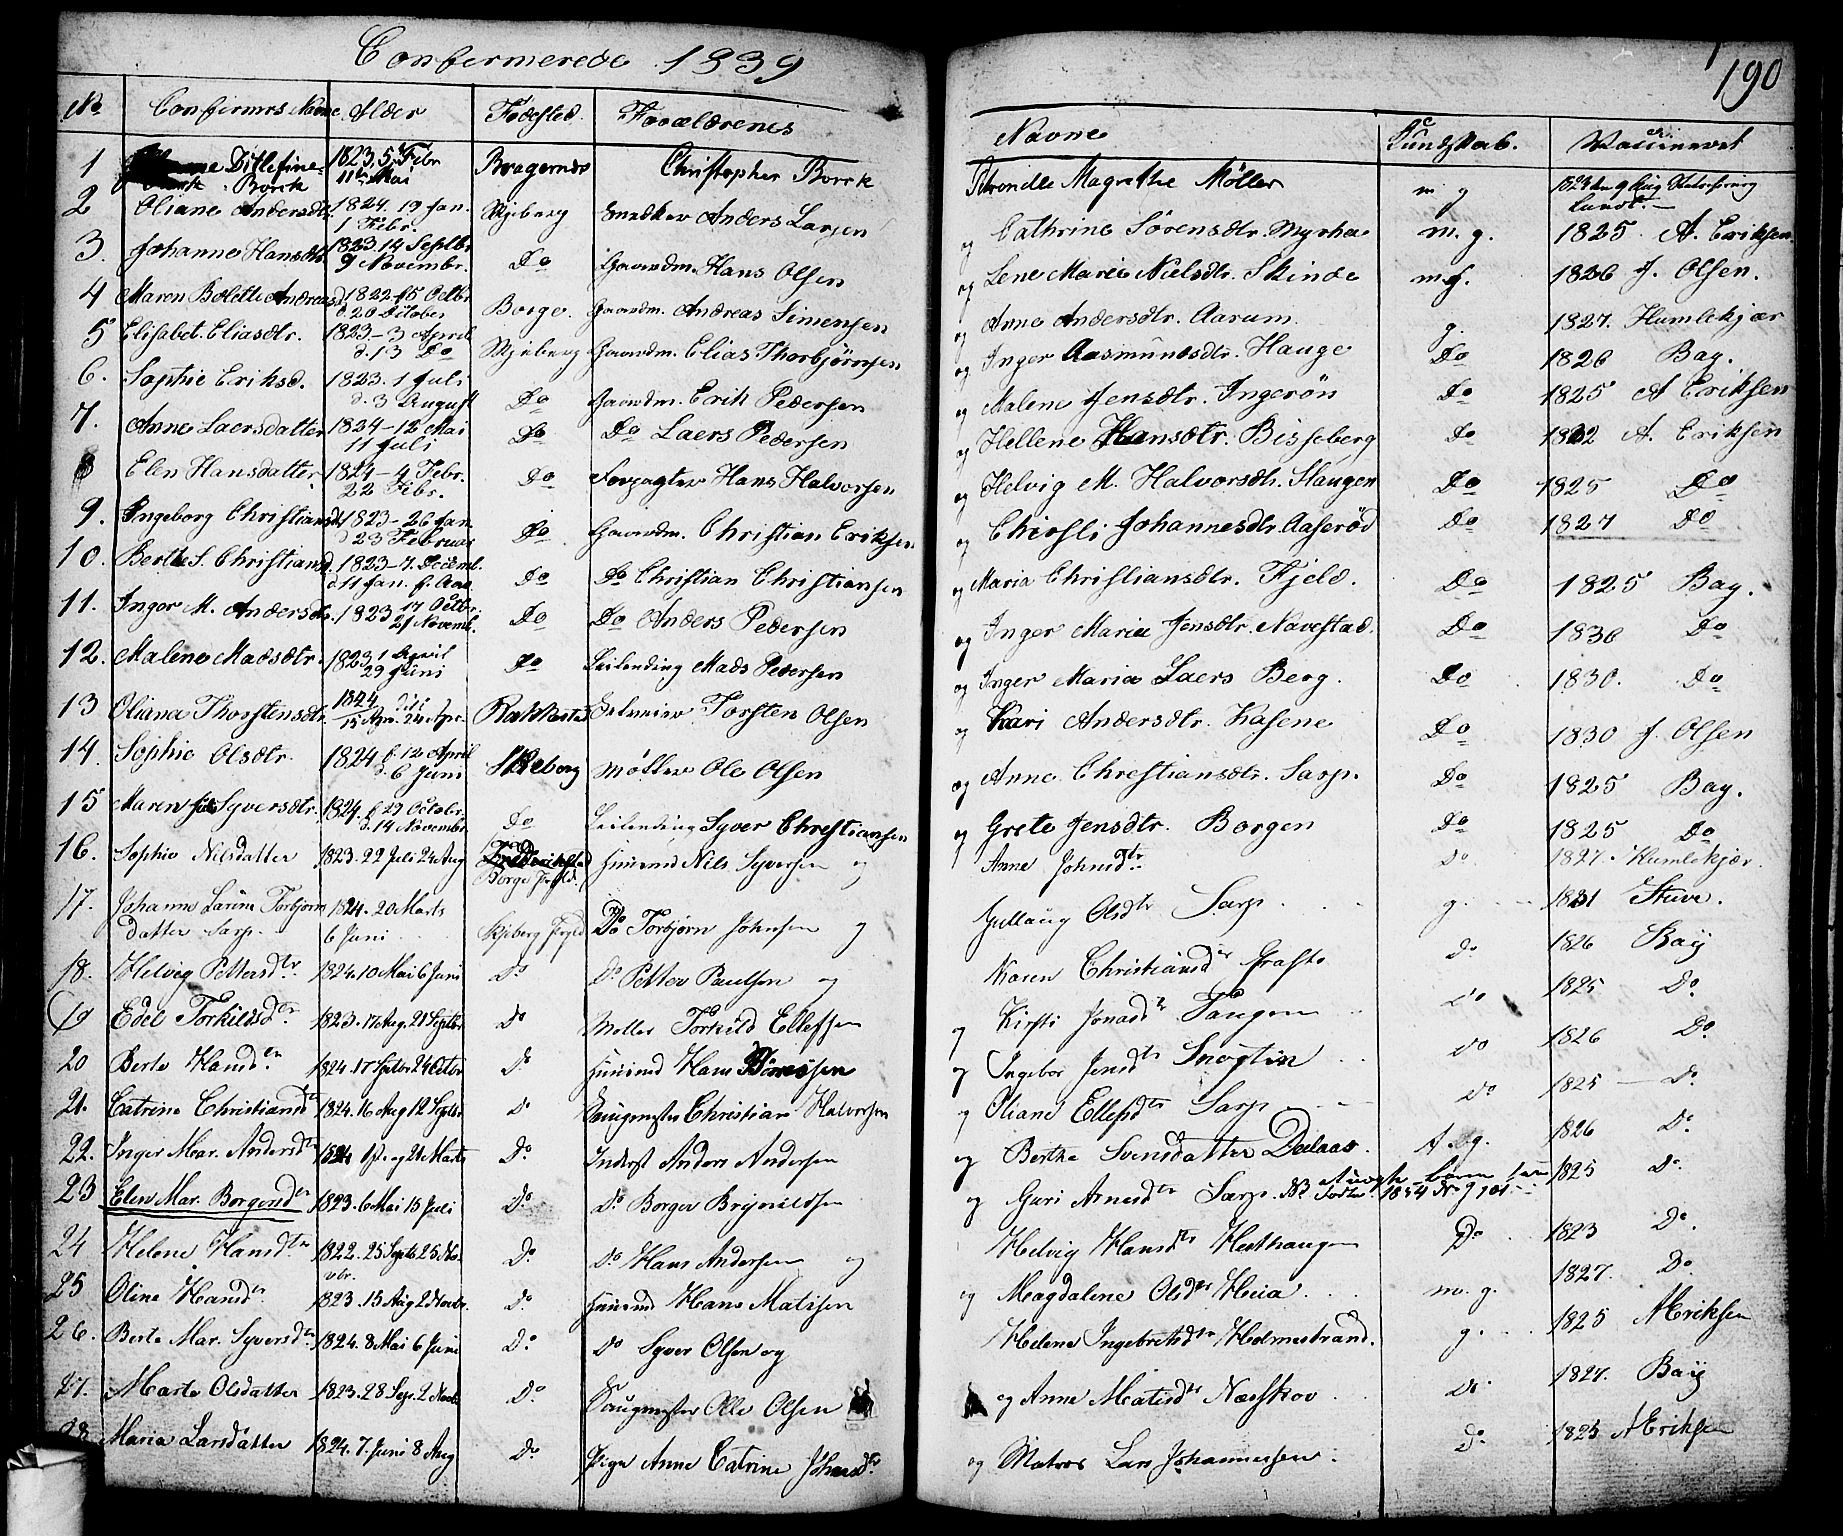 Confermerede 1839
190
No Confirmes Navne Alder Fødested Forældrenes Navne Kundskab. Vaccineret
1 Ditlefine Borck 1823. 5 Febr 11te Mai Bragernes Christopher Borck Trondle Magrethe Møller m g 1823 den 9 Aug
2 Oliane Andersdtr 1824. 19 Jan. 1 Febr. Skjeberg Snedker Anders Larsen og Cathrine Sørensdtr. Myrha m. g. 1825. A. Eriksen
3. Johanne Hansdtr 1823. 14 Septbr 9 Novembr. Do Gaardm. Hans Olsen og Lene Marie Nielsdtr. Skinde mg. 1826 J. Olsen.
4 Maren Bolette Andreasd 1822. 15 Octbr d. 20 October Borge. Gaardm. Andreas Simensen og Anne Andersdtr. Aarum. g. 1827. Humlekjær
5 Elisabet. Eliasdtr. 1823 - 3 April d. 13 Do Skjeberg Gaardm. Elias Thorbjørnsen og Inger Aasmundsdtr. Hauge Do 1826 Bay.
6. Sophie Eriksd. 1823. 1 Juli d. 3 August Do Gaardm. Erik Pedersen og Malene Jensdtr. Ingerøn Do 1825 A Eriksen
7. Anne Laersdatter 1824 - 12 Mai 11 Juli Do Do Laers Pedersen og Hellene Hansdtr. Bisseberg Do 1832 A. Eriksen
8 Elen Hansdatter 1824 - 4 Febr. 22 Febr. Do Forpagter Hans Halvorsen og Helvig M. Halvorsdtr. Haugen Do 1825 Do
9. Ingeborg Christiansd 1823 - 26 Jan d 23 Februar Do Gaardm. Christian Eriksen og Chirsti Johannesdtr. Aaserød Do 1827 Do
10. Berthe S. Christiansd. 1823 - 7. Decemb. d 11 Jan. f. Aar Do Do Christian Christiansen og Maria Christiansdtr. Fjeld. Do 1825 Bay.
11. Inger M. Andersdtr. 1823 17 Octbr. 21 Novemb. Do Do Anders Pedersen og Inger Maria Jensdtr. Navestad. Do 1830 Do
12. Malene Madsdtr. 1823 1 April 29 Juni Do Leilending Mads Pedersen og Inger Maria Laers Berg. Do 1830. Do
13 Oliana Thorstensdtr. 1824 15 Apr. 24 Apr. Rakkestad Torsten Olsen og Kari Andersdtr. Kasene Do 1830 J. Olsen
14. Sophie Olsdtr. 1824 f. 12 April d. 6 Juni Skjeberg Møller Ole Olsen og Anne Christiansdtr. Sarp. Do 1825 Bay.
15 Maren Syversdtr. 1824. f 29 Octobr. d. 14 Novembr Do Leilending Syver Christiansen og Grete Jensdtr. Borgen Do 1825 Do
16. Sophie Nilsdatter 1823. 22 Juli 24 Aug Borge Præstgjeld. Huusmd Nils Syversen og Anne Johnsdtr. Do 1827. Humlekjær
17. Johanne Larine Torbjørnsdatter Sarp. 1824. 20 Marts 6 Juni Skjeberg Do Torbjørn Johnsen og Gullaug Olsdtr Sarp g. 1831 Stuve.
18. Helvig Pettersdtr. 1824. 10 Mai 6 Juni Do Do Petter Paulsen og Karen Christiansdtr do 1826 Bay
19 Edel Torkildsdtr. 1823. 17 Aug. 21 Septbr Do Møller Torkild Ellefsen og Kirsti Jonasdtr Tangen do 1825 Do.
20 Berte Hansdtr. 1824. 17 Septbr 24 Octbr Do Huusmd Hans og Ingebor Jensdtr Snøgtin do 1826 Do
21. Catrine Christiansdtr 1824. 16 Aug 12 Septbr Do Saugmester Christian Halvorsen og Oliane Ellefsdtr Sarp do 1825 - Do.
22. Inger Mar. Andersdtr 1824 1ste og 21 Marts Do. Inderst Anders Andersen og Berthe Svensdatter Deelaas. T. g. 1826 Do.
23 Elen Mar. Borgersdtr 1823. 6 Mai 15 Juli Do. Do Borger Brynildsen og Guri Arnesdtr Sarp. NB. 1854 No 7 1825 Do.
24 Helene Hansdtr 1822. 25 Septb 25 Novbr. Do Do Hans Andersen og Helvig Hansdtr Hesthaugen Do 1823 Do.
25 Oline Hansdtr. 1823. 15 Aug 2 Novbr. Do. Huusmd Hans Matisen og Magdalene Olsdtr Heia m. g. 1827. Do.
26. Berte Mar. Syversdtr 1824. 8 Mai 6 Juni Do. Do Syver Olsen og Helene Ingebretsdtr Holmestrand. g. 1825 A Eriksen
27. Marte Olsdatter 1823. 28 Sep. 2 Novbr Do. Saugmester Olle Olsen og Anne Matisdtr Næsskov Do. 1827. Bay
28 Maria Larsdatter 1824. 7. Juni 8 Aug Do. Pige Anne Catrine Johnsdtr. og Matros Lars Johannessen. Do. 1825 A Eriksen